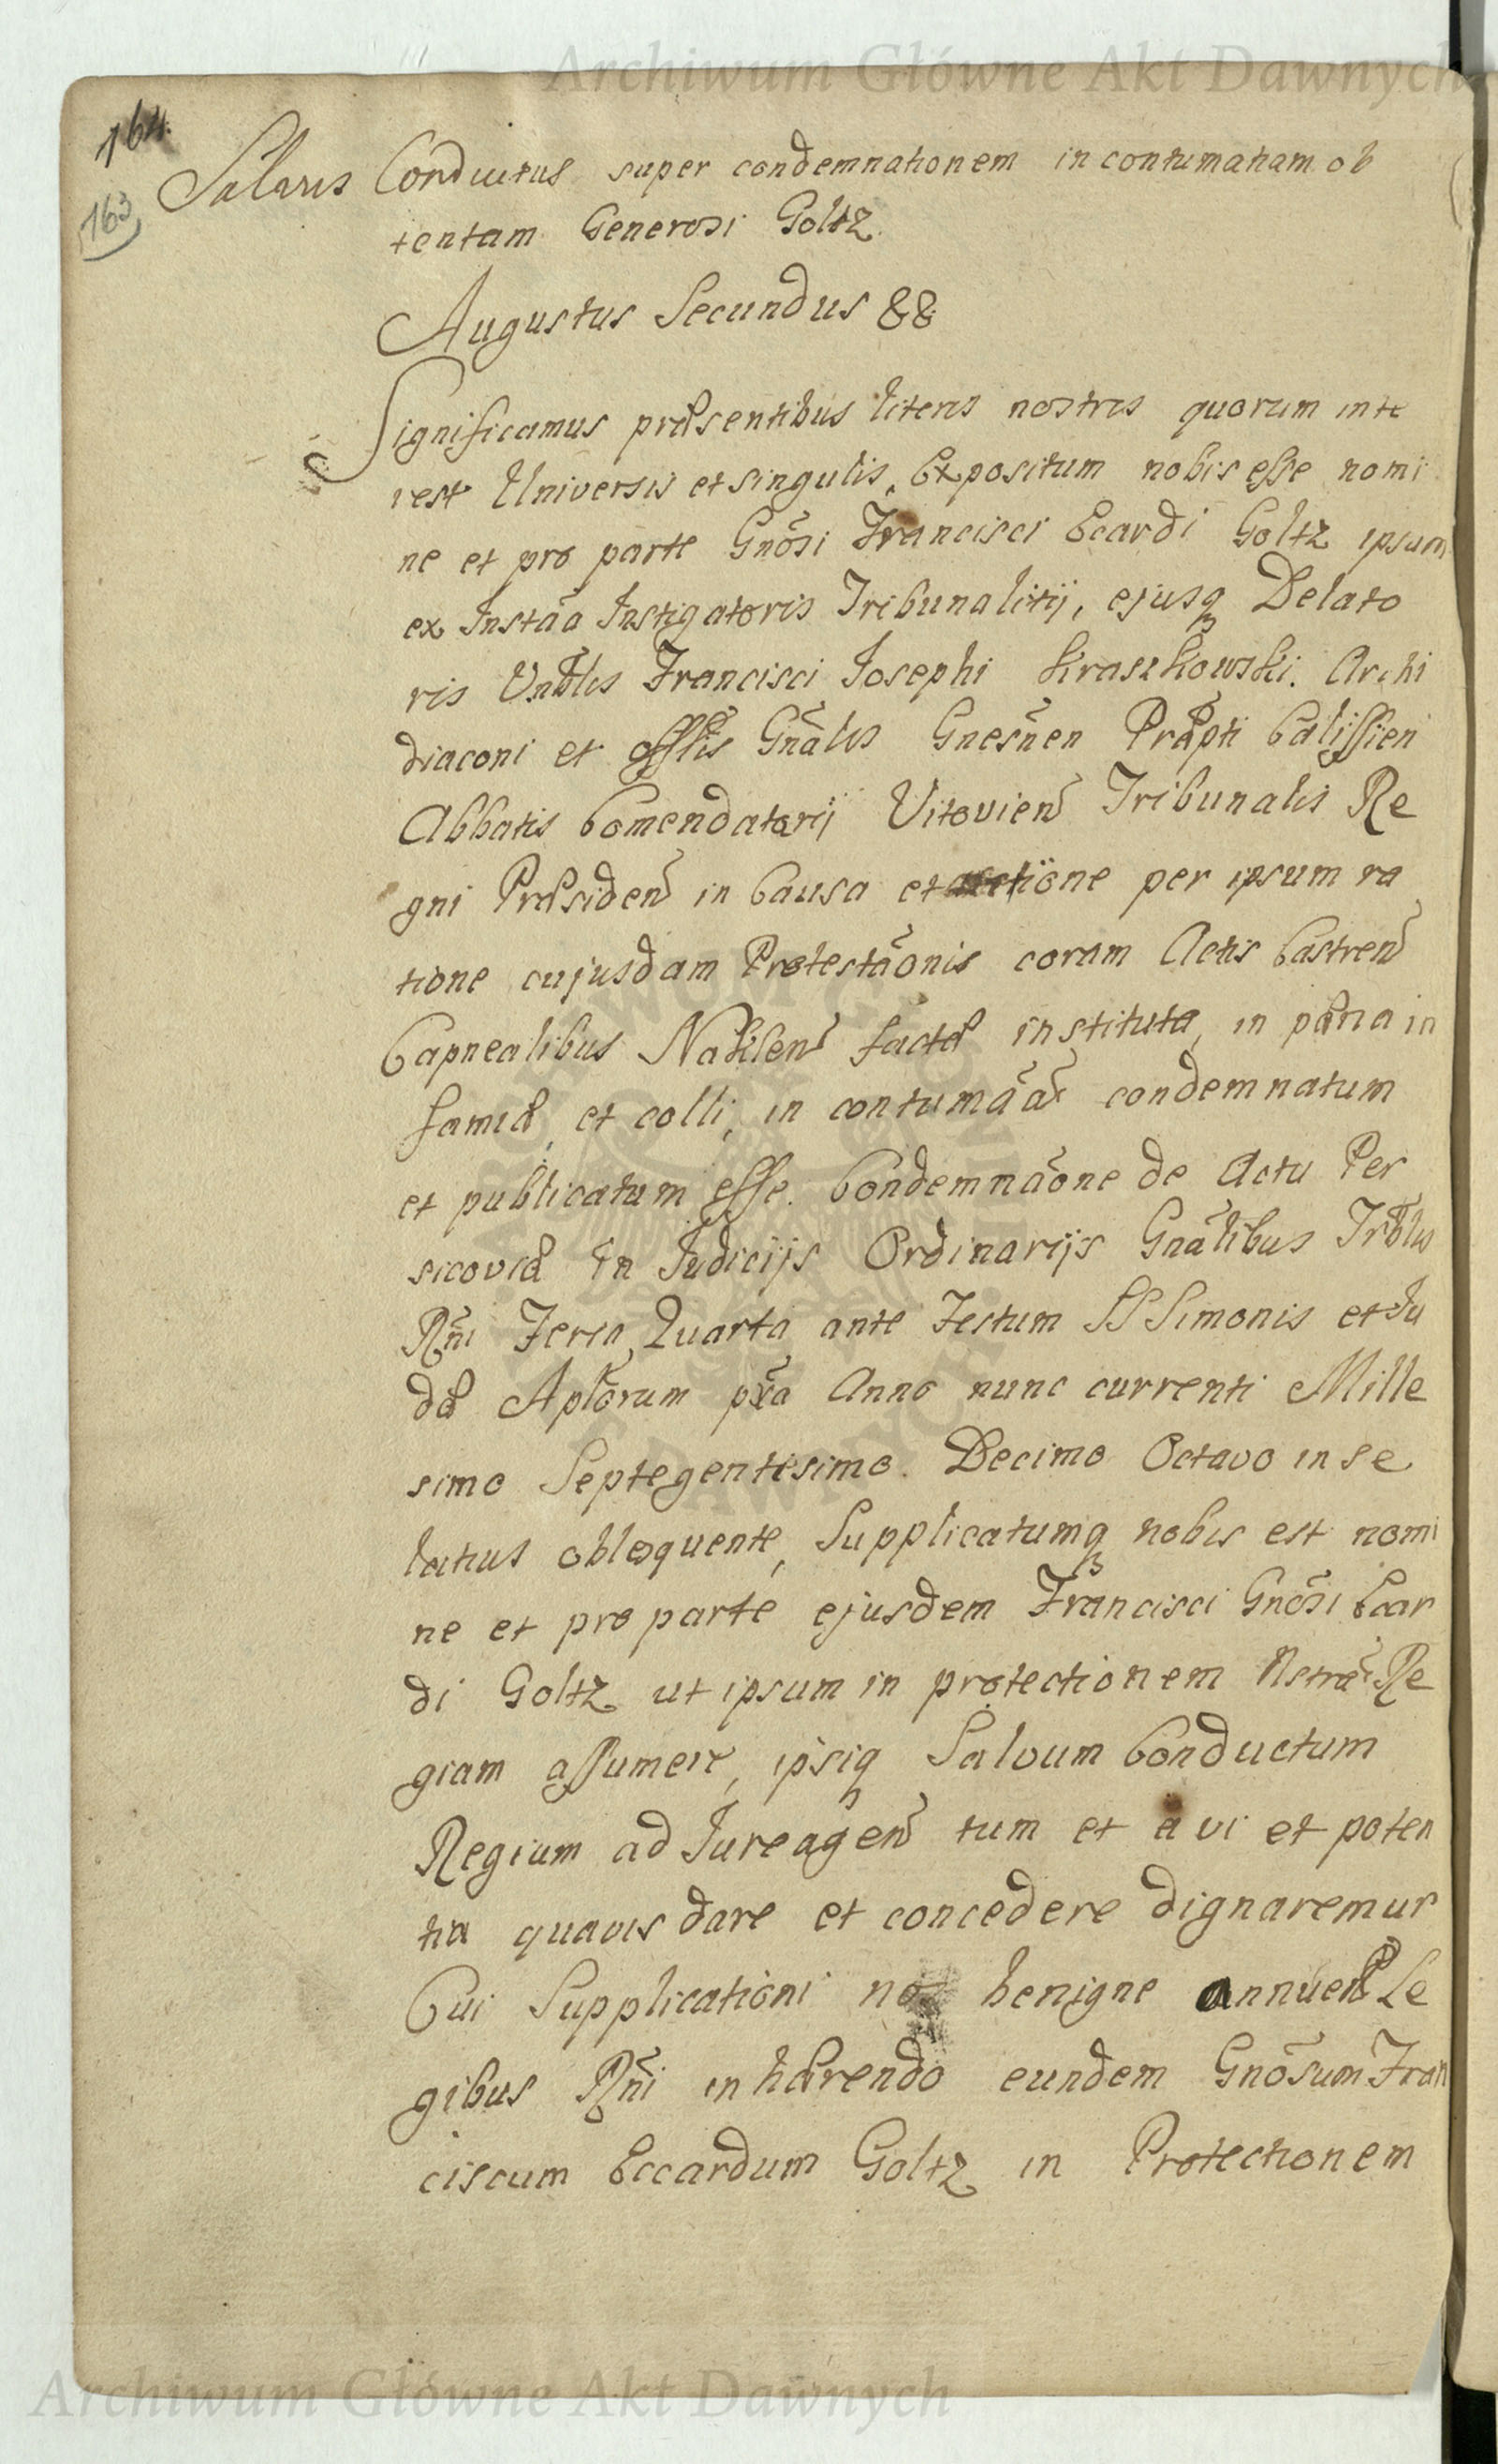 Archiwum Główne Akt Dawnych
164
163
Salvus Conductus super condemnationem in contumatiam ob
tentam Generosi Goltz
Augustus Secundus &&
Significamus præsentibus literis nostris quorum inte
rest Universis et singulis, Expositum nobis esse nomi
ne et pro parte Gnõsi Francisci Ecardi Goltz ipsum
ex Instãa Instigatoris Tribunalitij, ejusq Delato
ris Vnblis Francisci Josephi Kraszkowski Archi
diaconi et offlis Gnãlis Gnesñen Præpti Calissien
Abbatis Comendatarij Vitovien Tribunalis Re
gni Præsiden in Causa et actione per ipsum ra
tione cujusdam Protestãonis coram Actis Castren
Capnealibus Naklen factæ instituta, in pæna in
famiæ, et colli, in contumãa condemnatum
et publicatum esse. Condemnãone de Actu Per
sicoviæ in Judicijs Ordinarijs Gnãlibus Trblis
Rñi Feria Quarta ante Festum SS Simonis et Ju
dæ Aplõrum pxa Anno nunc currenti Mille
simo Septegentesimo Decimo Octavo in se
latius obloquente, Supplicatumq nobis est nomi
ne et pro parte ejusdem Francisci Gnõsi Ecar
di Goltz ut ipsum in protectionem Nstrã Re
giam assumere, ipsiq Salvum Conductum
Regium ad Jure agen tum et a vi et poten
tia quavis dare et concedere dignaremur
Cui Supplicationi benigne annuen Le
gibus Rñi inhærendo eundem Gnõsum Fran
ciscum Eccardum Goltz in Protectionem
Archiwum Główne Akt Dawnych